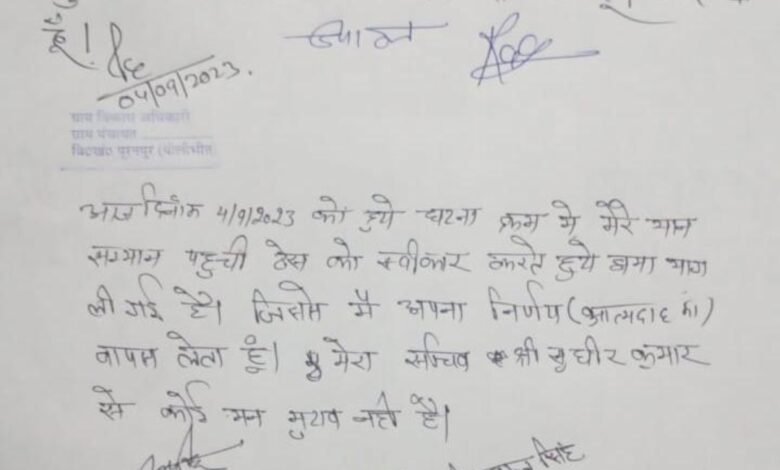 हूँ।
04/09/2023.
ग्राम विकास अधिकारी
ग्राम पंचायत
वि०ख० पूरनपुर (पीलीभीत)
आज दिनांक 4/9/2023 को हुये घटना क्रम मे मेरे मान
सम्मान पहुची ठेस को स्वीकार करते हुये क्षमा माग
ली गई है। जिसमे मै अपना निर्णय (आत्मदाह का)
वापस लेता हूं। मेरा सचिव श्री सुधीर कुमार
से कोई मन मुटाव नही है।
सिंह